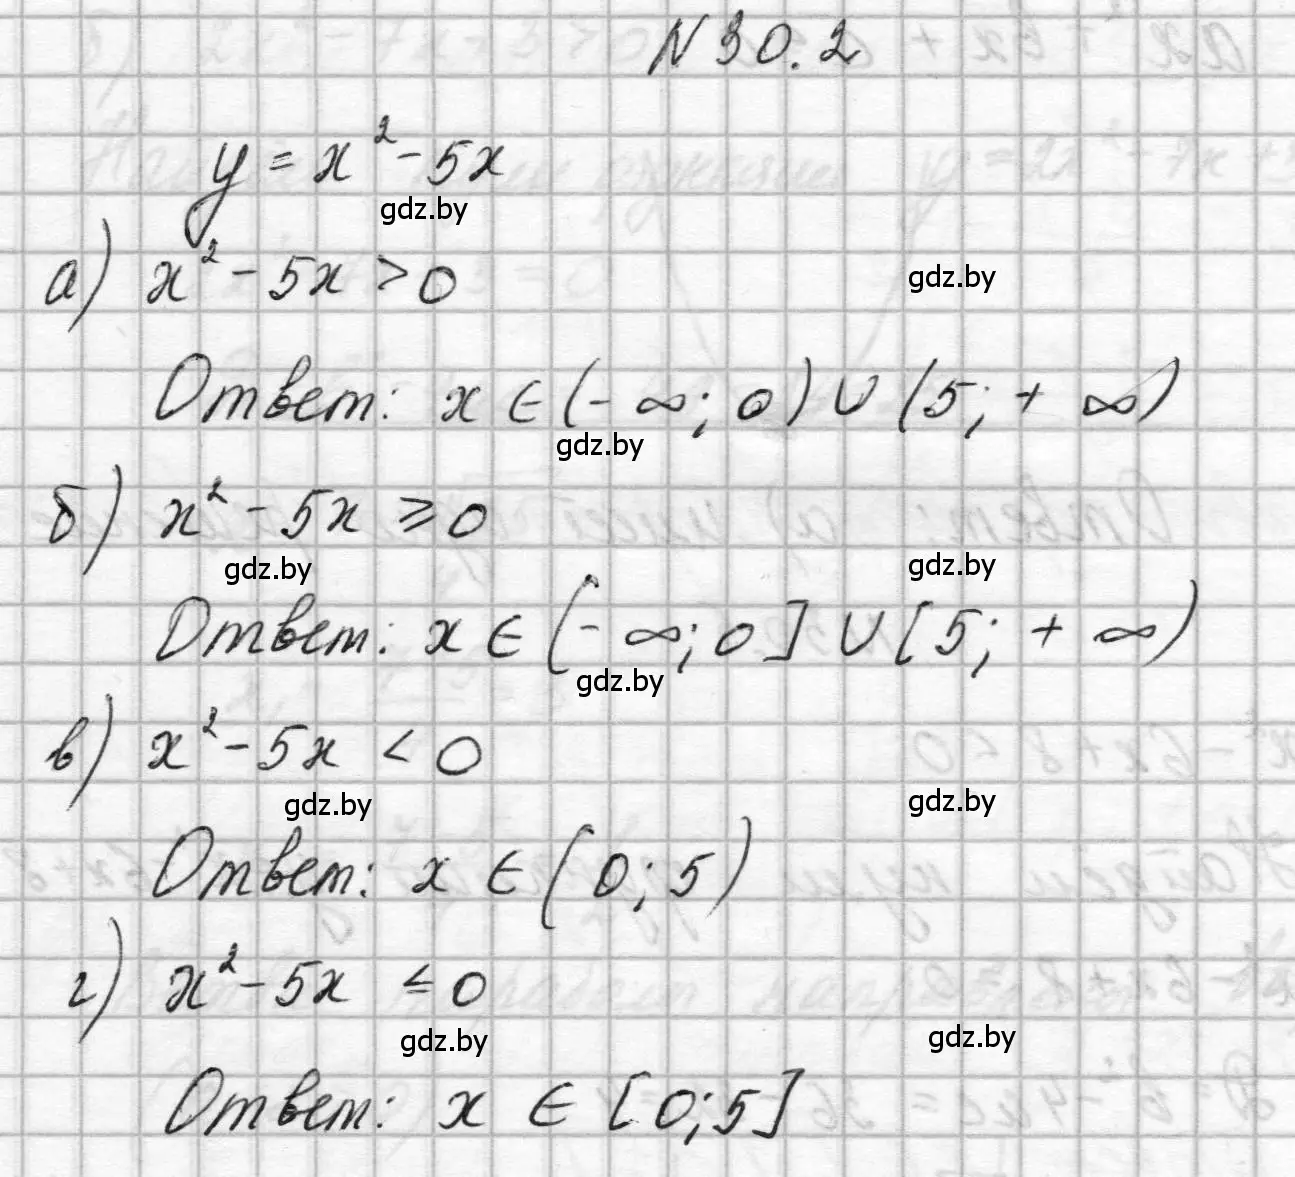 N 30.2
y = x² - 5x
gdz.by
а) x² - 5x > 0
gdz.by
Ответ: x ∈ (- ∞; 0) ∪ (5; + ∞)
gdz.by
б) x² - 5x ⩾ 0
gdz.by
gdz.by
Ответ: x ∈ (- ∞; 0] ∪ [5; + ∞)
gdz.by
в) x² - 5x < 0
gdz.by
gdz.by
Ответ: x ∈ (0; 5)
г) x² - 5x ≤ 0
gdz.by
gdz.by
Ответ: x ∈ [0; 5]